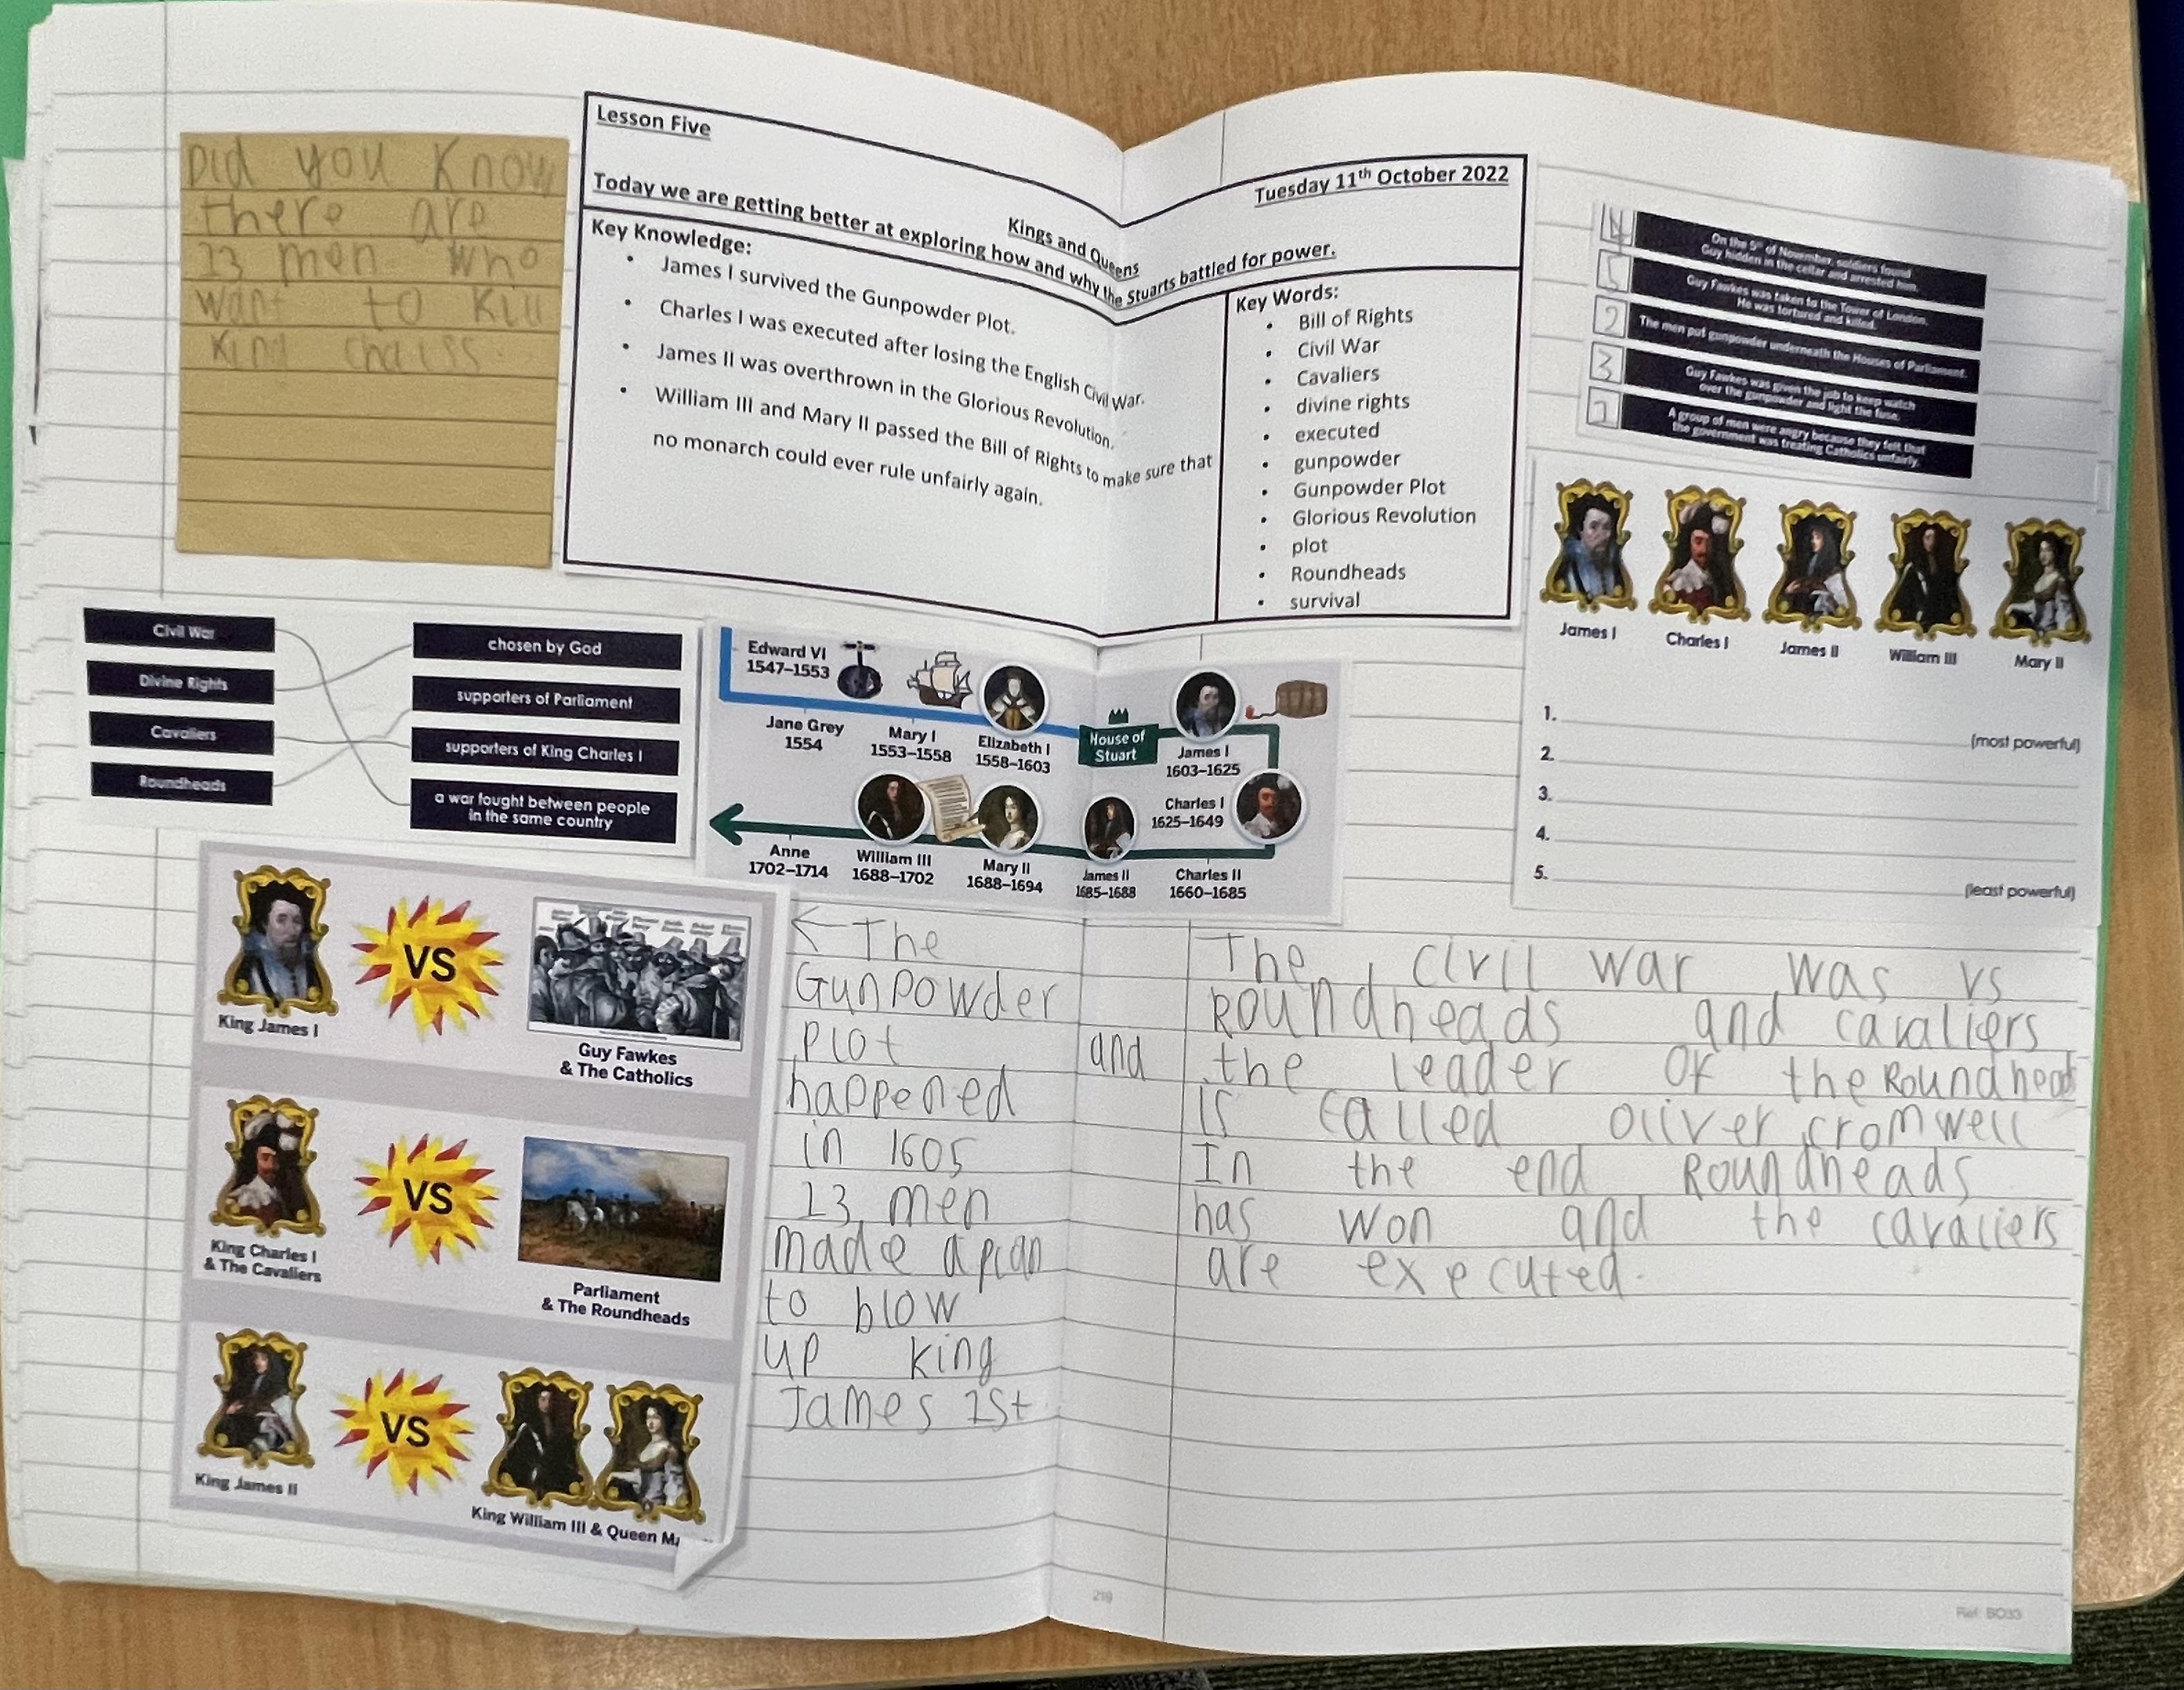 Did you Know
there are
13 men who
want to Kill
King chalss.
Lesson Five
Tuesday 11th October 2022
Kings and Queens
Today we are getting better at exploring how and why the Stuarts battled for power.
Key Knowledge:
• James I survived the Gunpowder Plot.
• Charles I was executed after losing the English Civil War.
• James II was overthrown in the Glorious Revolution.
• William III and Mary II passed the Bill of Rights to make sure that
no monarch could ever rule unfairly again.
Key Words:
• Bill of Rights
• Civil War
• Cavaliers
• divine rights
• executed
• gunpowder
• Gunpowder Plot
• Glorious Revolution
• plot
• Roundheads
• survival
4 On the 5th of November, soldiers found
Guy hidden in the cellar and arrested him.
5 Guy Fawkes was taken to the Tower of London.
He was tortured and killed.
2 The men put gunpowder underneath the Houses of Parliament.
3 Guy Fawkes was given the job to keep watch
over the gunpowder and light the fuse.
1 A group of men were angry because they felt that
the government was treating Catholics unfairly.
James I
Charles I
James II
William III
Mary II
1.
(most powerful)
2.
3.
4.
5.
(least powerful)
Civil War
Divine Rights
Cavaliers
Roundheads
chosen by God
supporters of Parliament
supporters of King Charles I
a war fought between people
in the same country
Edward VI
1547–1553
Jane Grey
1554
Mary I
1553–1558
Elizabeth I
1558–1603
House of
Stuart
James I
1603–1625
Charles I
1625–1649
Charles II
1660–1685
James II
1685–1688
Mary II
1688–1694
William III
1688–1702
Anne
1702–1714
King James I
VS
Guy Fawkes
& The Catholics
King Charles I
& The Cavaliers
VS
Parliament
& The Roundheads
King James II
VS
King William III & Queen Ma
← The
Gunpowder
Plot
happened
in 1605
13 men
made a plan
to blow
up king
James 1st.
The civil war was vs
Roundheads and cavaliers
and the leader of the Roundheads
is called oliver cromwell
In the end Roundheads
has won and the cavaliers
are executed.
219
Ref: BC033